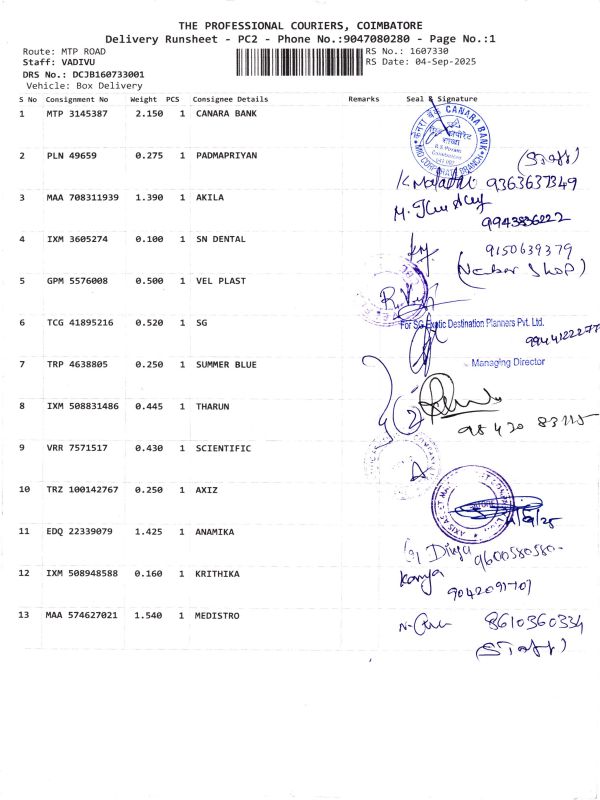 THE PROFESSIONAL COURIERS, COIMBATORE
Delivery Runsheet - PC2 - Phone No.:9047080280 - Page No.:1
Route: MTP ROAD RS No.: 1607330
Staff: VADIVU RS Date: 04-Sep-2025
DRS No.: DCJB160733001
Vehicle: Box Delivery
S No Consignment No Weight PCS Consignee Details Remarks Seal & Signature
1 MTP 3145387 2.150 1 CANARA BANK
CANARA BANK
2 PLN 49659 0.275 1 PADMAPRIYAN
(Staff)
K. Malathi 9363637349
3 MAA 708311939 1.390 1 AKILA
9943836222
4 IXM 3605274 0.100 1 SN DENTAL
9150639379
(Neber Shop)
5 GPM 5576008 0.500 1 VEL PLAST
6 TCG 41895216 0.520 1 SG
For SG Exotic Destination Planners Pvt. Ltd.
9944122277
Managing Director
7 TRP 4638805 0.250 1 SUMMER BLUE
8 IXM 508831486 0.445 1 THARUN
98420 83115
9 VRR 7571517 0.430 1 SCIENTIFIC
10 TRZ 100142767 0.250 1 AXIZ
11 EDQ 22339079 1.425 1 ANAMIKA
Divya 9600580580
12 IXM 508948588 0.160 1 KRITHIKA
Kavya
13 MAA 574627021 1.540 1 MEDISTRO
8610360334
(Staff)